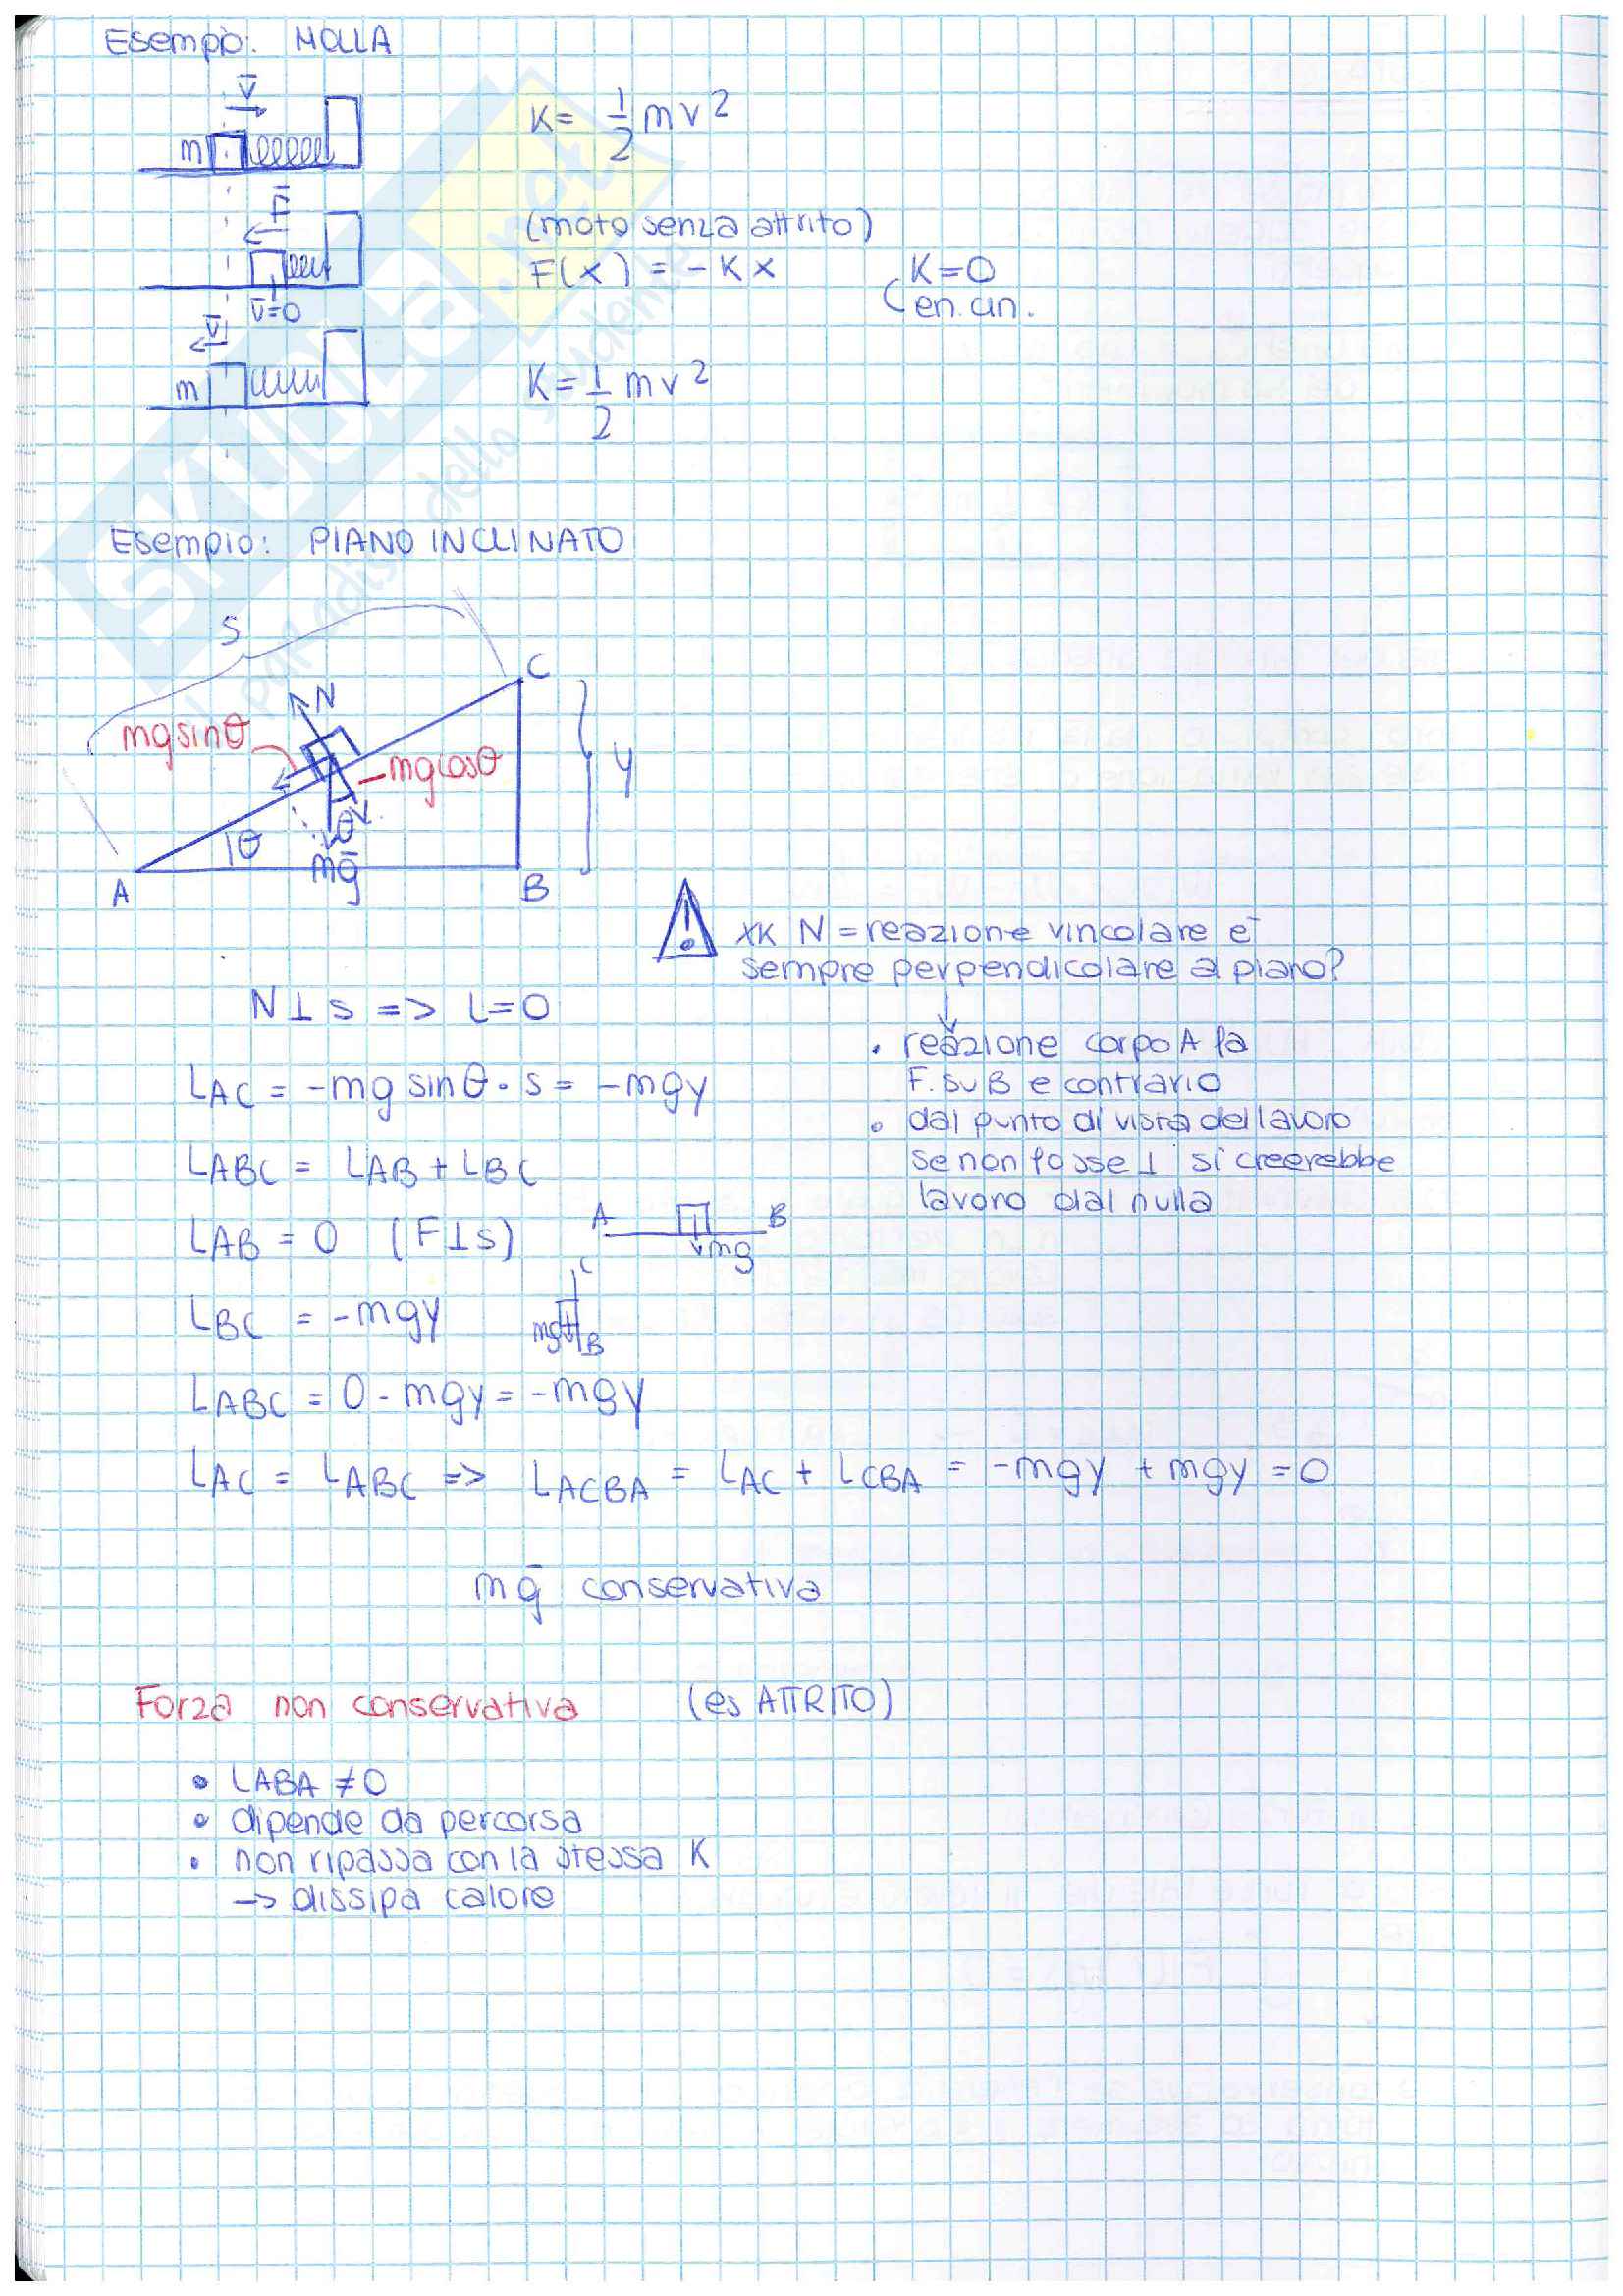 Esempio: MOLLA
v̄
m
K = 1/2 mv²
F̄
(moto senza attrito)
F(x) = -Kx
K=0
en. cin.
v̄=0
v̄
m
K = 1/2 mv²
Esempio: PIANO INCLINATO
S
C
N
mg sinθ
-mg cosθ
y
θ
θ
mḡ
A
B
! xk N = reazione vincolare è
sempre perpendicolare al piano?
↓
• reazione corpo A fa
F. su B e contrario
• dal punto di vista del lavoro
se non fosse ⊥ si creerebbe
lavoro dal nulla
N⊥s => L=0
LAC = -mg sinθ · s = -mgy
LABC = LAB + LBC
LAB = 0 (F⊥s)
A B
mg
LBC = -mgy
C
mg
B
LABC = 0 - mgy = -mgy
LAC = LABC => LACBA = LAC + LCBA = -mgy + mgy = 0
mḡ conservativa
Forza non conservativa (es ATTRITO)
• LABA ≠ 0
• dipende da percorsa
• non ripassa con la stessa K
-> dissipa calore
SKUOLA.net
il paradiso dello studente